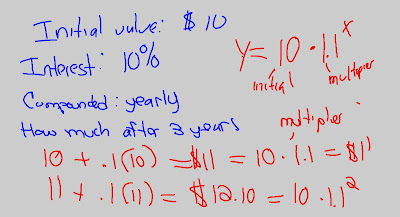 Initial value: $ 10
Interest: 10%
Compounded: yearly
How much after 3 years
y = 10 · 1.1^x
initial
multiplier
multiplier
10 + .1(10) = $11 = 10 · 1.1 = $11
11 + .1(11) = $12.10 = 10 · 1.1^2